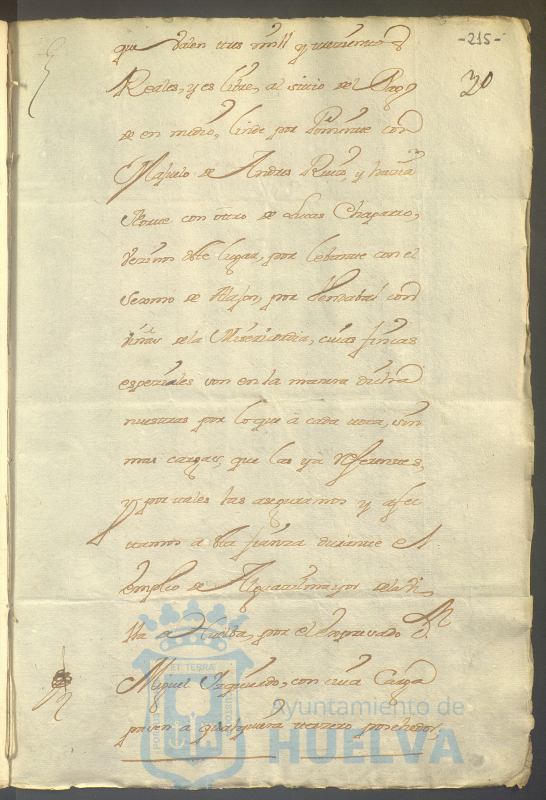 -215-
30
que valen tres mill y
Reales, y es libre, al sitio del Pago
de en medio, linde por Poniente con
Majuelo de Andres Ruiz, y hacia
Norte con otro de Lucas Chaparro,
vezinos deste lugar, por lebante con el
de Alajon, por con
viñas de la Misericordia, cuias fincas
espeziales son en la manera dicha
nuestras por lo que à cada uno, sin
mas cargas, que las yà referentes,
y por tales las aseguramos y afec
tamos a esta fianza durante el
empleo de Alguacil mayor de la Vi
lla de Huelba, por el expresado Dn
Miguel Izquierdo, con cuia Carga
pasen a qualquiera terzero pohedor;
ET TERRAE
PORTUS
CUSTODIA
Ayuntamiento de
HUELVA